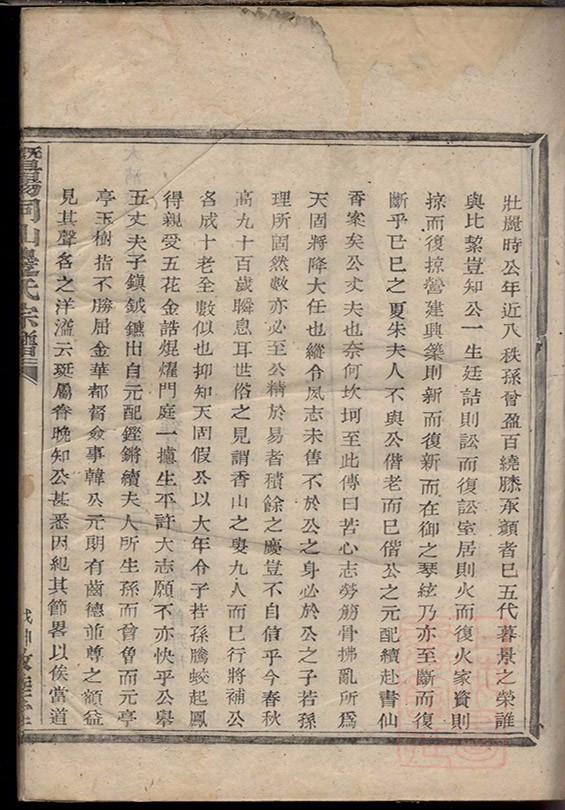 壯麗時公年近八秩孫曾盈百繞膝承顏者已五代暮景之榮誰
與比絜豈知公一生廷詰則訟而復訟室居則火而復火家資則
掠而復掠營建興築則新而復新而在御之琴絃乃亦至斷而復
斷乎已巳之夏朱夫人不與公偕老而巳偕公之元配續赴書仙
香案矣公丈夫也奈何坎坷至此傳曰苦心志勞筋骨拂亂所為
天固將降大任也縱令夙志未售不於公之身必於公之子若孫
理所固然數亦必至公精於易者積餘之慶豈不自信乎今春秋
高九十百歲瞬息耳世俗之見謂香山之叟九人而巳行將補公
名成十老全數似也抑知天固假公以大年令子若孫騰蛟起鳳
得親受五花金誥焜燿門庭一攄生平許大志願不亦快乎公舉
五丈夫子鎮鉞鑣出自元配鏗鏘續夫人所生孫而曾曾而元亭
亭玉樹指不勝屈金華都督僉事韓公元朗有齒德並尊之額益
見其聲名之洋溢云斑屬眷晚知公甚悉因紀其節畧以俟當道
暨陽同山邊氏宗譜